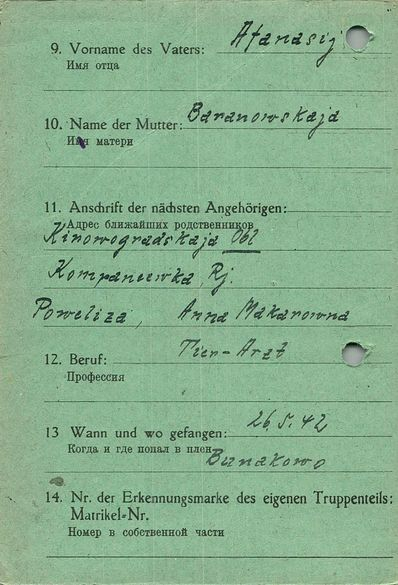 9. Vorname des Vaters: Afanasij
Имя отца
10. Name der Mutter: Baranowskaja
Имя матери
11. Anschrift der nächsten Angehörigen:
Адрес ближайших родственников
Kinowogradskaja Obl
Kompaneewka, Rj.
Poweliza, Anna Makarowna
12. Beruf: Tier-Arzt
Профессия
13 Wann und wo gefangen: 26.5.42
Когда и где попал в плен Bunakowo
14. Nr. der Erkennungsmarke des eigenen Truppenteils:
Matrikel-Nr.
Номер в собственной части